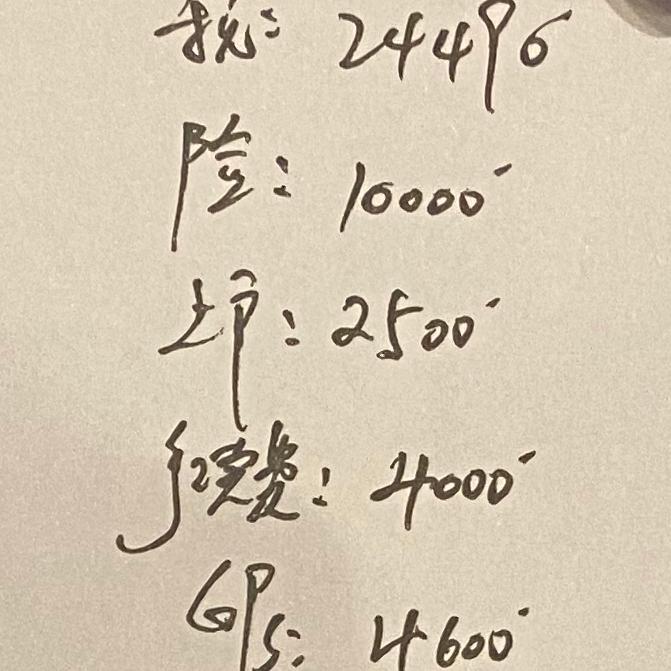 税: 24496
险: 10000
上户: 2500
手续费: 4000
GPS: 4600